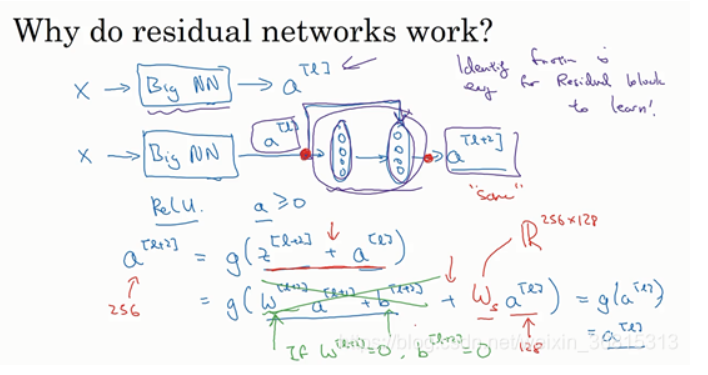 Why do residual networks work?
X → Big NN → a^[l]
Identity function is
easy for Residual block
to learn!
X → Big NN → a^[l] → a^[l+2]
"same"
ReLU. a ≥ 0
ℝ^256×128
a^[l+2] = g(z^[l+2] + a^[l])
256
= g(W^[l+2] a^[l+1] + b^[l+2] + W_s a^[l]) = g(a^[l])
= a^[l]
128
If W^[l+2]=0, b^[l+2]=0